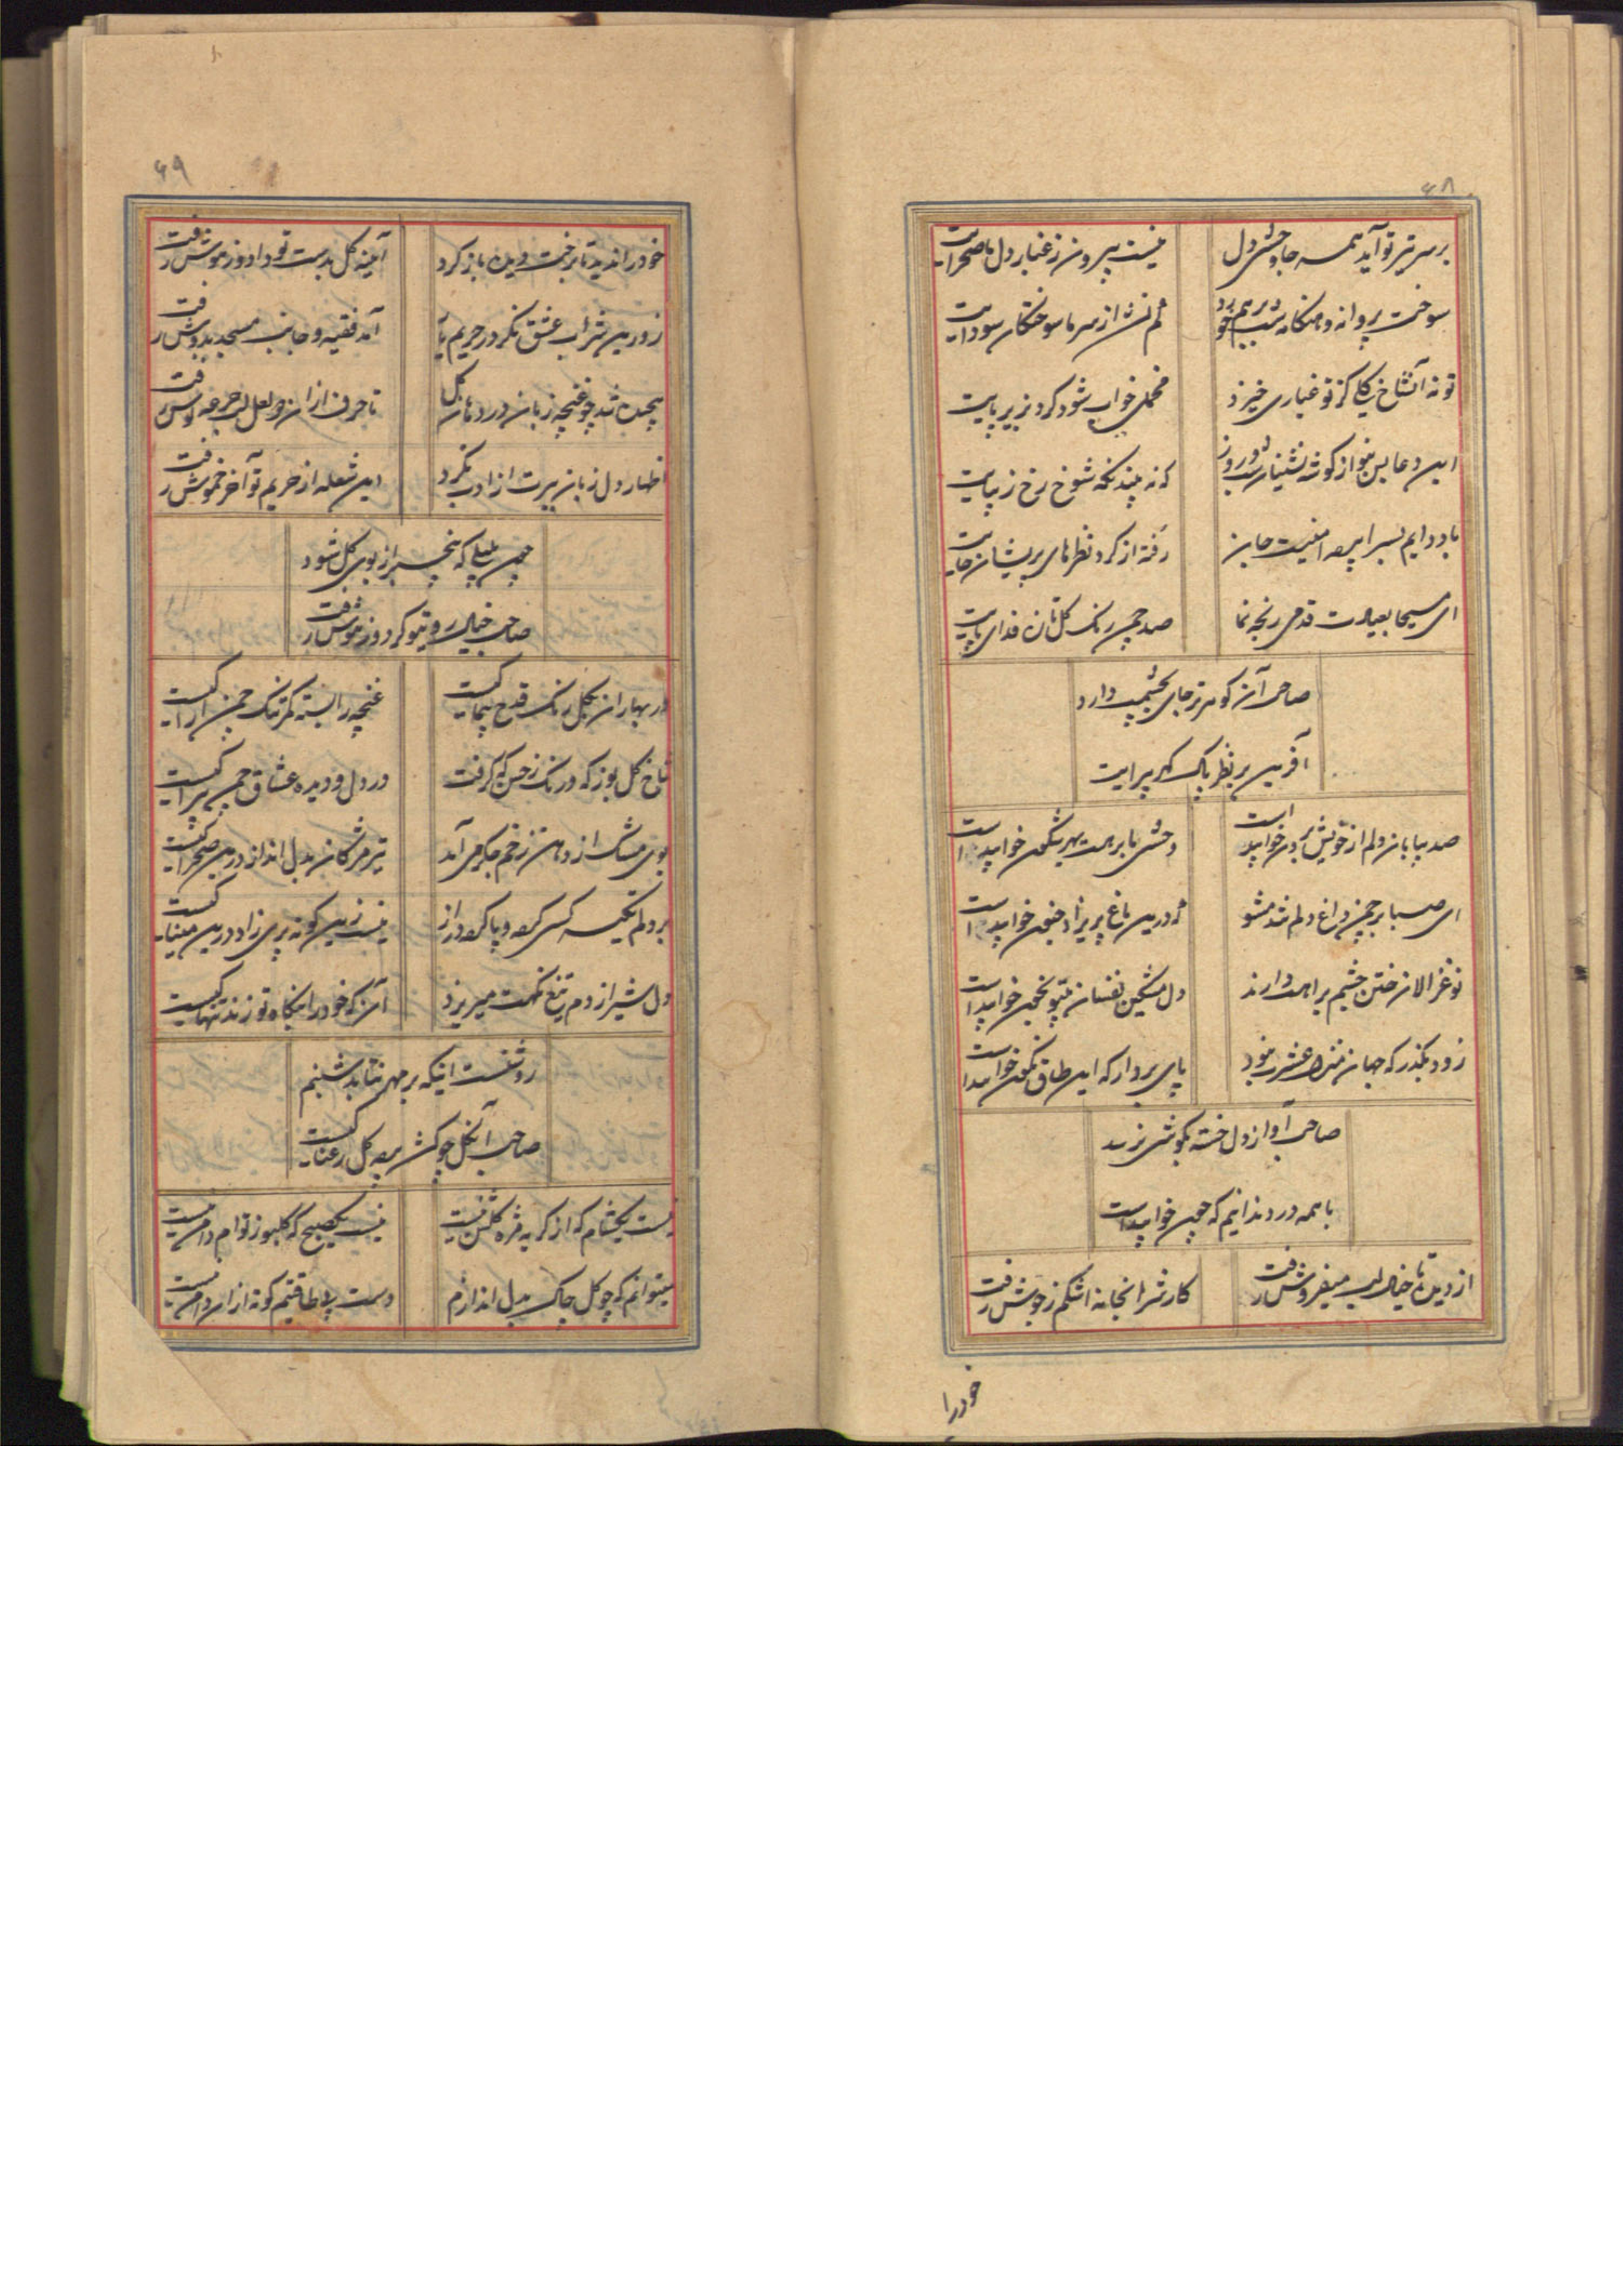 ۶۸
بر سر تیر تو آید همه جا وحشی دل
نیست بیرون ز غبار دل ما صحرایت
سوخت پروانه و هنگامه شب برهم خورد
کم نشد از سر ما سوختگان سودایت
تو نه آن شاخ گلی کز تو غباری خیزد
مخملی خواب شود گرد بزیر پایت
این دعا بس بتو از گوشه نشینان شب و روز
که نه بیند نگه شوخ رخ زیبایت
باد دایم بسرا پرده امنیت جا
رفته از گرد نظرهای پریشان جایت
ای مسیحا بعیادت قدمی رنجه نما
صد چمن رنگ گلستان فدای پایت
صاحب آن گوهر تر جای بچشمت دارد
آفرین بر نظر پاک گهر پیرایت
صد بیابان دلم از خویش برون خوابیده است
وحشی ما برهت بهر شگون خوابیده است
ای صبا بر چمن داغ دلم تند مشو
که درین باغ پریزاد جنون خوابیده است
نو غزالان ختن چشم براهت دارند
دل مشکین نفسان بیتو بخون خوابیده است
زود بگذر که جهان منزل عشرت نبود
پای بردار که این طاق نگون خوابیده است
صاحب آواز دل خسته بگوشی نرسد
با همه درد ندانیم که چون خوابیده است
از دیده تا خیال لب میفروش رفت
کارش بخانه اشکم ز جوش رفت
خود را
۶۹
خود را ندید تا برخت دیده باز کرد
آیینه گل بدست تو داد و ز هوش رفت
زور می شراب عشق نگر در حریم
آمد فقیه و جانب مسجد بدوش رفت
پیچیده شد چو غنچه زبان در دهان گل
تا حرف ازان دو لعل لب جرعه نوش رفت
اظهار دل زبان بپرت از ادب نکرد
این شعله از حریم تو آخر خموش رفت
چون بلبلی که بیخبر از بوی گل شود
صاحب خیال روی تو کرد و ز هوش رفت
در بهاران بگل رنگ قدح پیما کیست
غنچه را بسته کمر تنگ چمن آرا کیست
شاخ گل بوز که و رنگ ز حسن که گرفت
در دل و دیده عشاق چمن پیرا کیست
بوی مشک از دهن زخم جگر می آید
تیر مژگان بدل انداز درین صحرا کیست
بر دلم تکیه کسی کرده و پا کرده دراز
نیست زین گونه پری زاد درین مینا کیست
دل شیر از دم تیغ نگهت میریزد
آن که خود را بنگاه تو زند تنها کیست
روشنست اینکه بر مهر نتابد شبنم
صاحب آن گل چو کشد پرده گل رعنا کیست
نیست یکشام که از گریه مژه گلشن نیست
نیست یکصبح که گلبوز توام دامن نیست
میتوانم که چو گل چاک بدل اندازم
دست بیطاقتیم کوته ازان دامن نیست